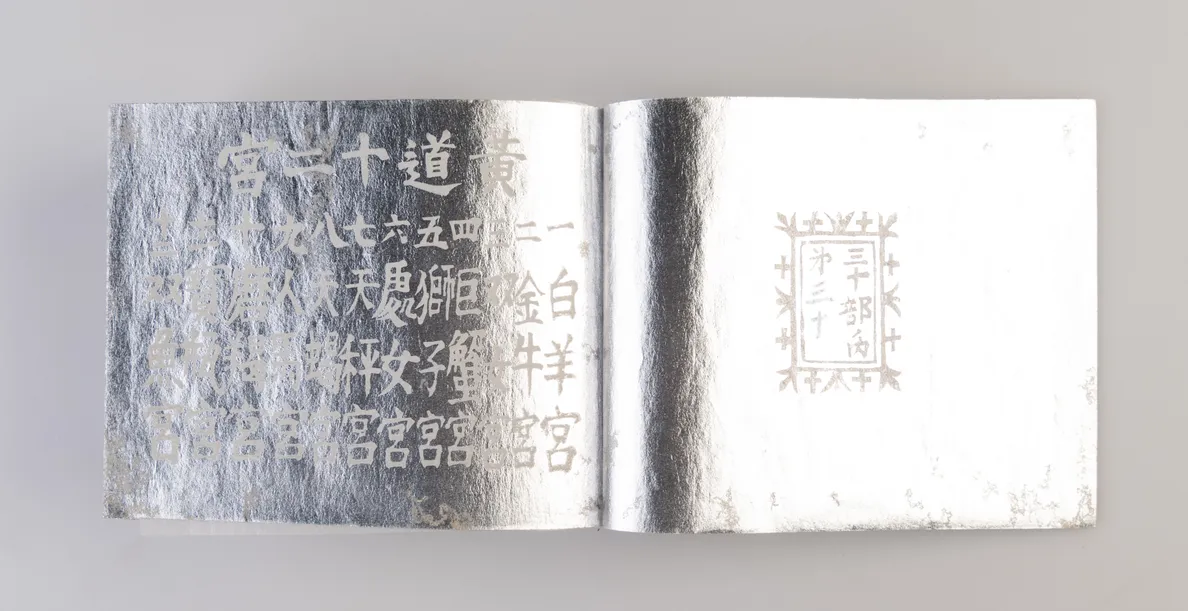 黄道十二宮
一白羊宮
二金牛宮
三双女宮
四巨蟹宮
五獅子宮
六處女宮
七天秤宮
八天蝎宮
九人馬宮
十磨羯宮
十二双魚宮
三十部内
㐧三十